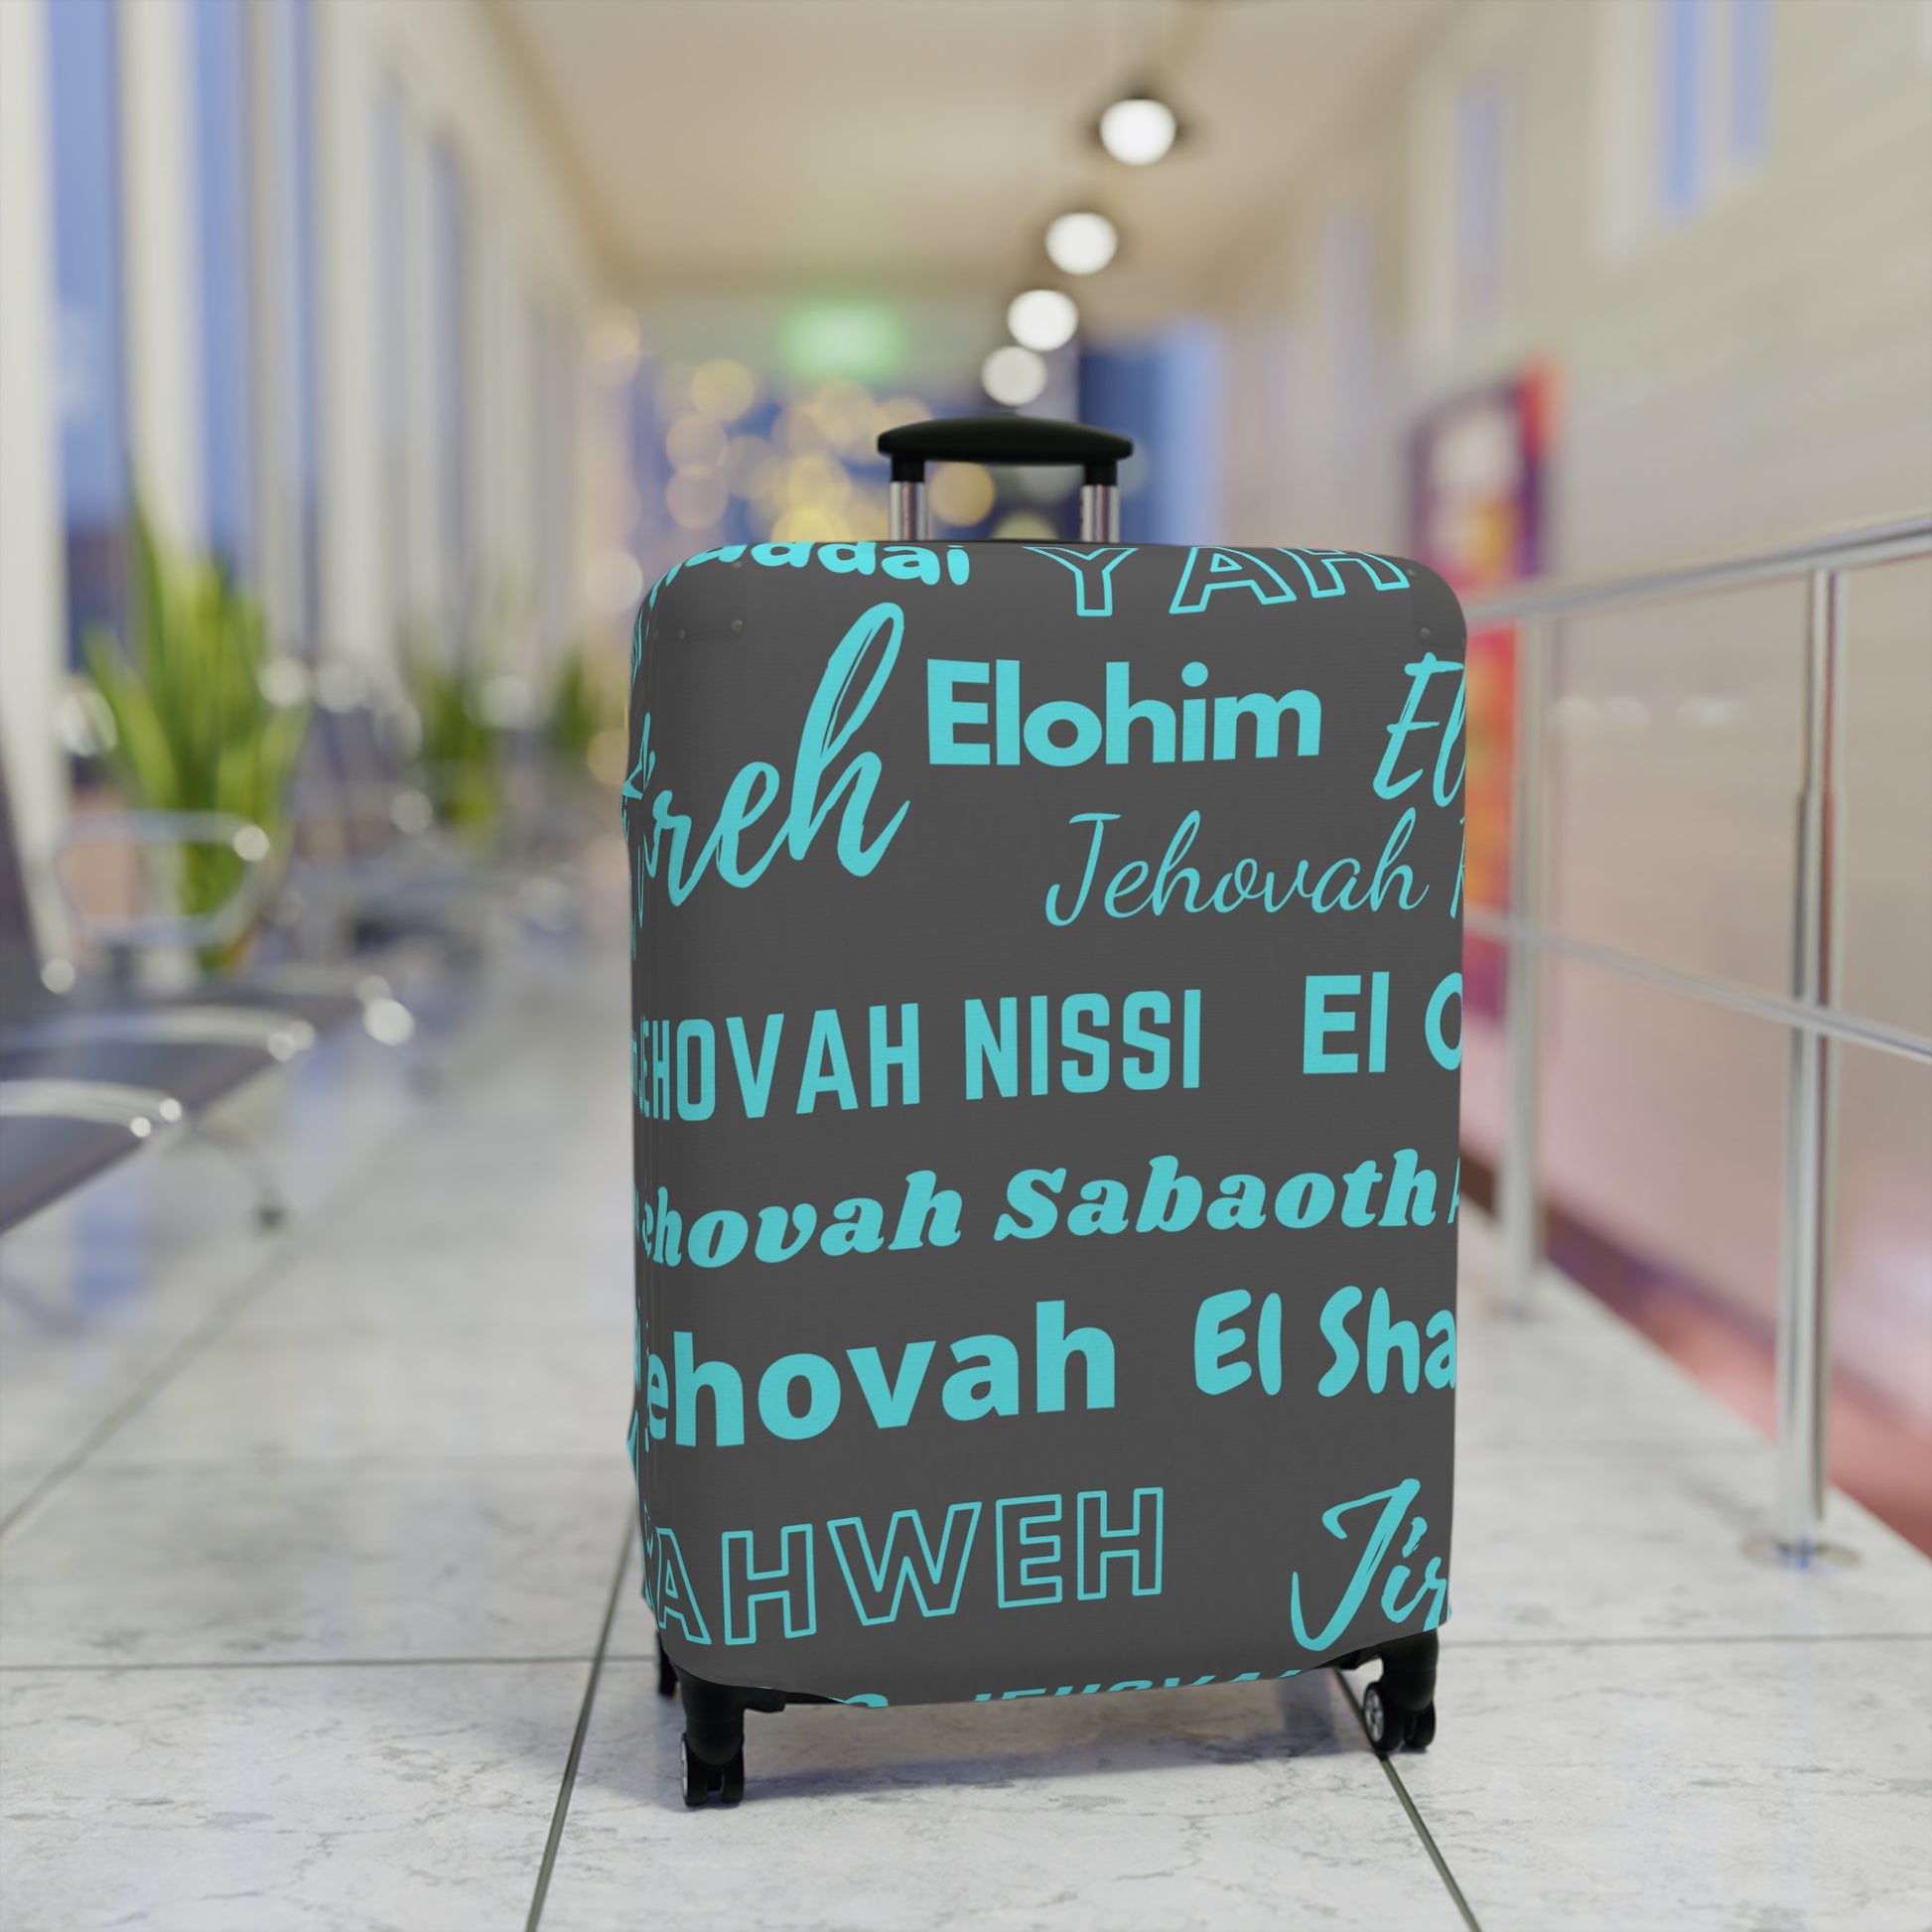 addai YAH
reh Elohim El
Jehovah
JEHOVAH NISSI El O
ehovah Sabaoth
ehovah El Sha
YAHWEH Jir
JEHOVAH